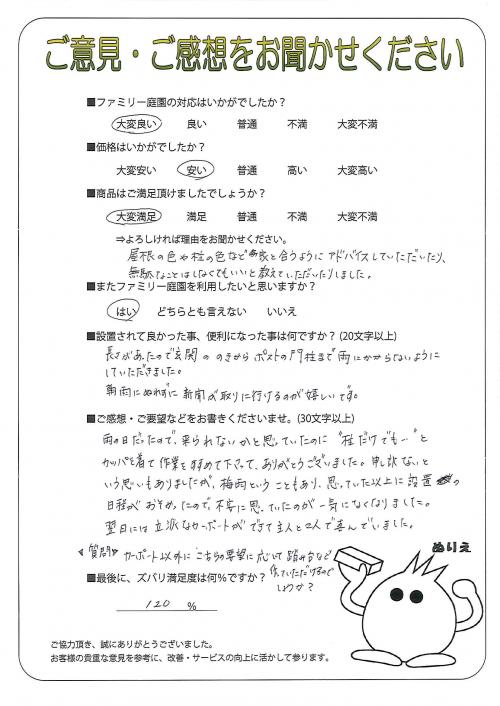 ご意見・ご感想をお聞かせください
■ファミリー庭園の対応はいかがでしたか？
大変良い 良い 普通 不満 大変不満
■価格はいかがでしたか？
大変安い 安い 普通 高い 大変高い
■商品はご満足頂けましたでしょうか？
大変満足 満足 普通 不満 大変不満
⇒よろしければ理由をお聞かせください。
屋根の色や柱の色など家と合うようにアドバイスしていただいたり、
無駄なことはしなくてもいいと教えていただいたりしました。
■またファミリー庭園を利用したいと思いますか？
はい どちらとも言えない いいえ
■設置されて良かった事、便利になった事は何ですか？(20文字以上)
長さがあったので玄関ののきからポストの門柱まで雨にかからないように
していただきました。
朝雨にぬれずに新聞が取りに行けるのが嬉しいです。
■ご感想・ご要望などをお書きくださいませ。(30文字以上)
雨の日だったので、来られないかと思っていたのに"柱だけでも…"と
カッパを着て作業を進めて下さって、ありがとうございました。申し訳ないと
いう思いもありましたが、梅雨ということもあり、思っていた以上に設置の
日程がおそかったので、不安に思っていたのが一気になくなりました。
翌日には立派なカーポートができて主人と2人で喜んでいました。
《質問》カーポート以外にこちらの要望に応じて踏み台など
作っていただけるので
しょうか？
■最後に、ズバリ満足度は何％ですか？
120 %
ぬりえ
ご協力頂き、誠にありがとうございました。
お客様の貴重な意見を参考に、改善・サービスの向上に活かして参ります。